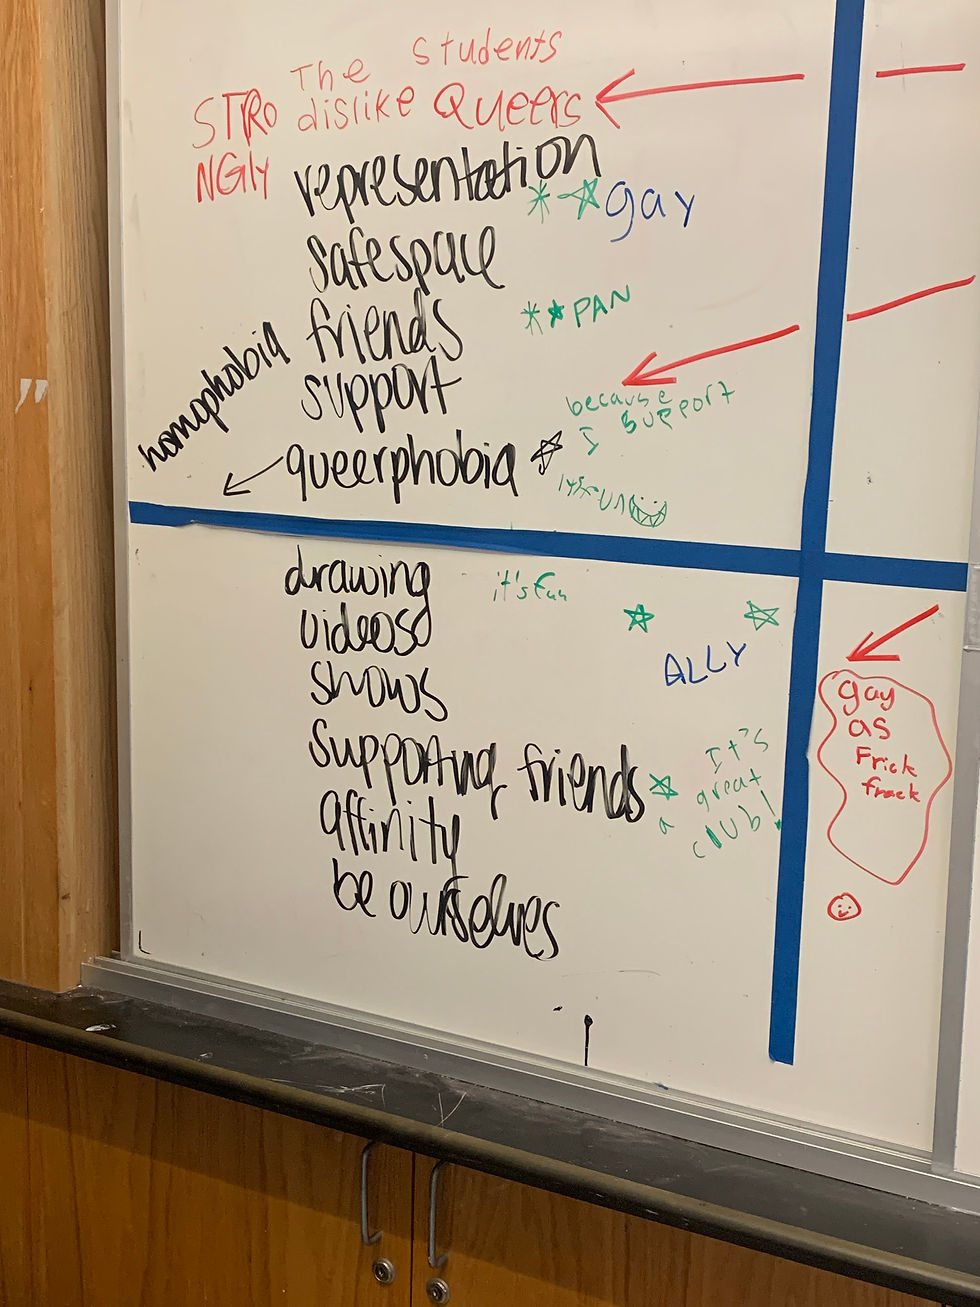 The students
STRO dislike Queers
NGly representation
gay
safespace
friends
PAN
homophobia
support
because
I support
queerphobia
it's fun
drawing
it's fun
videos
ALLY
shows
gay
as
Frick
frack
supporting friends
It's
great
a
club!
affinity
be ourselves